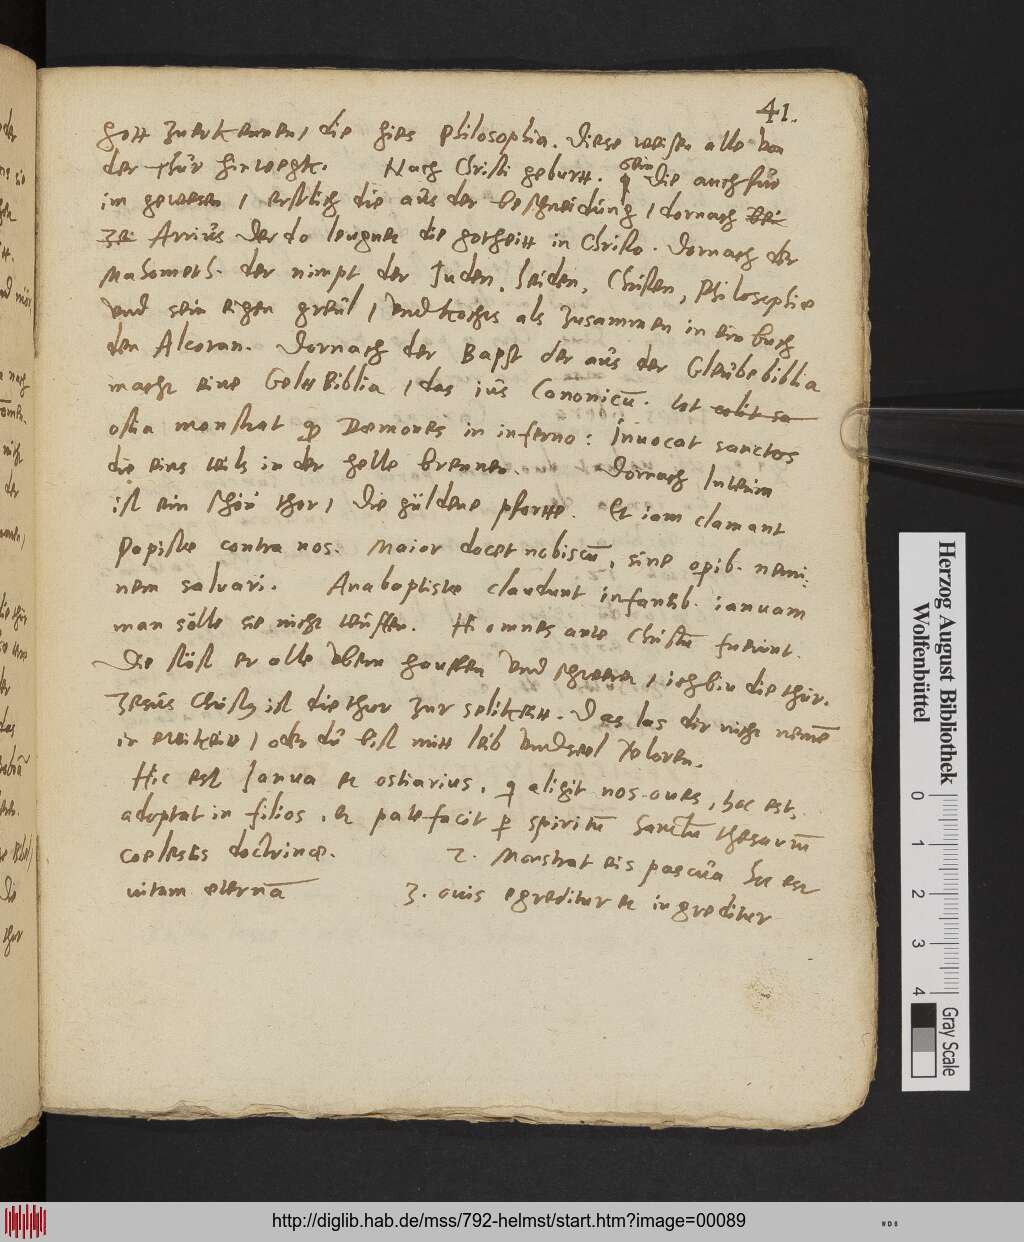 41.
gott zuerkennen, die hies philosophia. Diese weisen alle von
der thür hinwegk. Nach Christi geburtt. sein die auch für
im gewesen, erstlich die aus der beschneidung, dornach
Arrius der do leugnet die gotheitt in Christo. Dornach der
Mahometh. der nimpt der Juden, heiden, Christen, Philosophie
und sein eigen greul, und kochts als zusammen in ein buch
den Alcoran. Dornach der Bapst der aus der Gleubebiblia
macht eine Geltt Biblia, das ius Canonicū. tot
ostia monstrat qͦ Dæmones in inferno: Invocat sanctos
die eins teils in der helle brennen. Dornach Interim
ist ein schön thor, die güldene pfortte. Et iam clamant
Papistæ contra nos. Maior docet nobiscū, sine opib. nemi:
nem salvari. Anabaptistæ claudunt infantib. ianuam
man sölle sie nicht teuffen. Hi omnes ante Christū fuerunt.
Die stöst er alle ubern hauffen und schreien, ich bin die thür.
Jesus Christus ist die thur zur selikeitt. Das las dir nicht nemē
in ewikeitt, oder du bist mitt leib und seel verloren.
Hic est Ianua et ostiarius, q aligit nos oues, hoc est,
adoptat in filios, et patefacit p spiritū sanctū thesaurū
coelestis doctrinæ. 2. Monstrat eis pascua hoc est
vitam eternā 3. ouis egreditur et ingreditur
Herzog August Bibliothek
Wolfenbüttel
0 1 2 3 4
Gray Scale
http://diglib.hab.de/mss/792-helmst/start.htm?image=00089